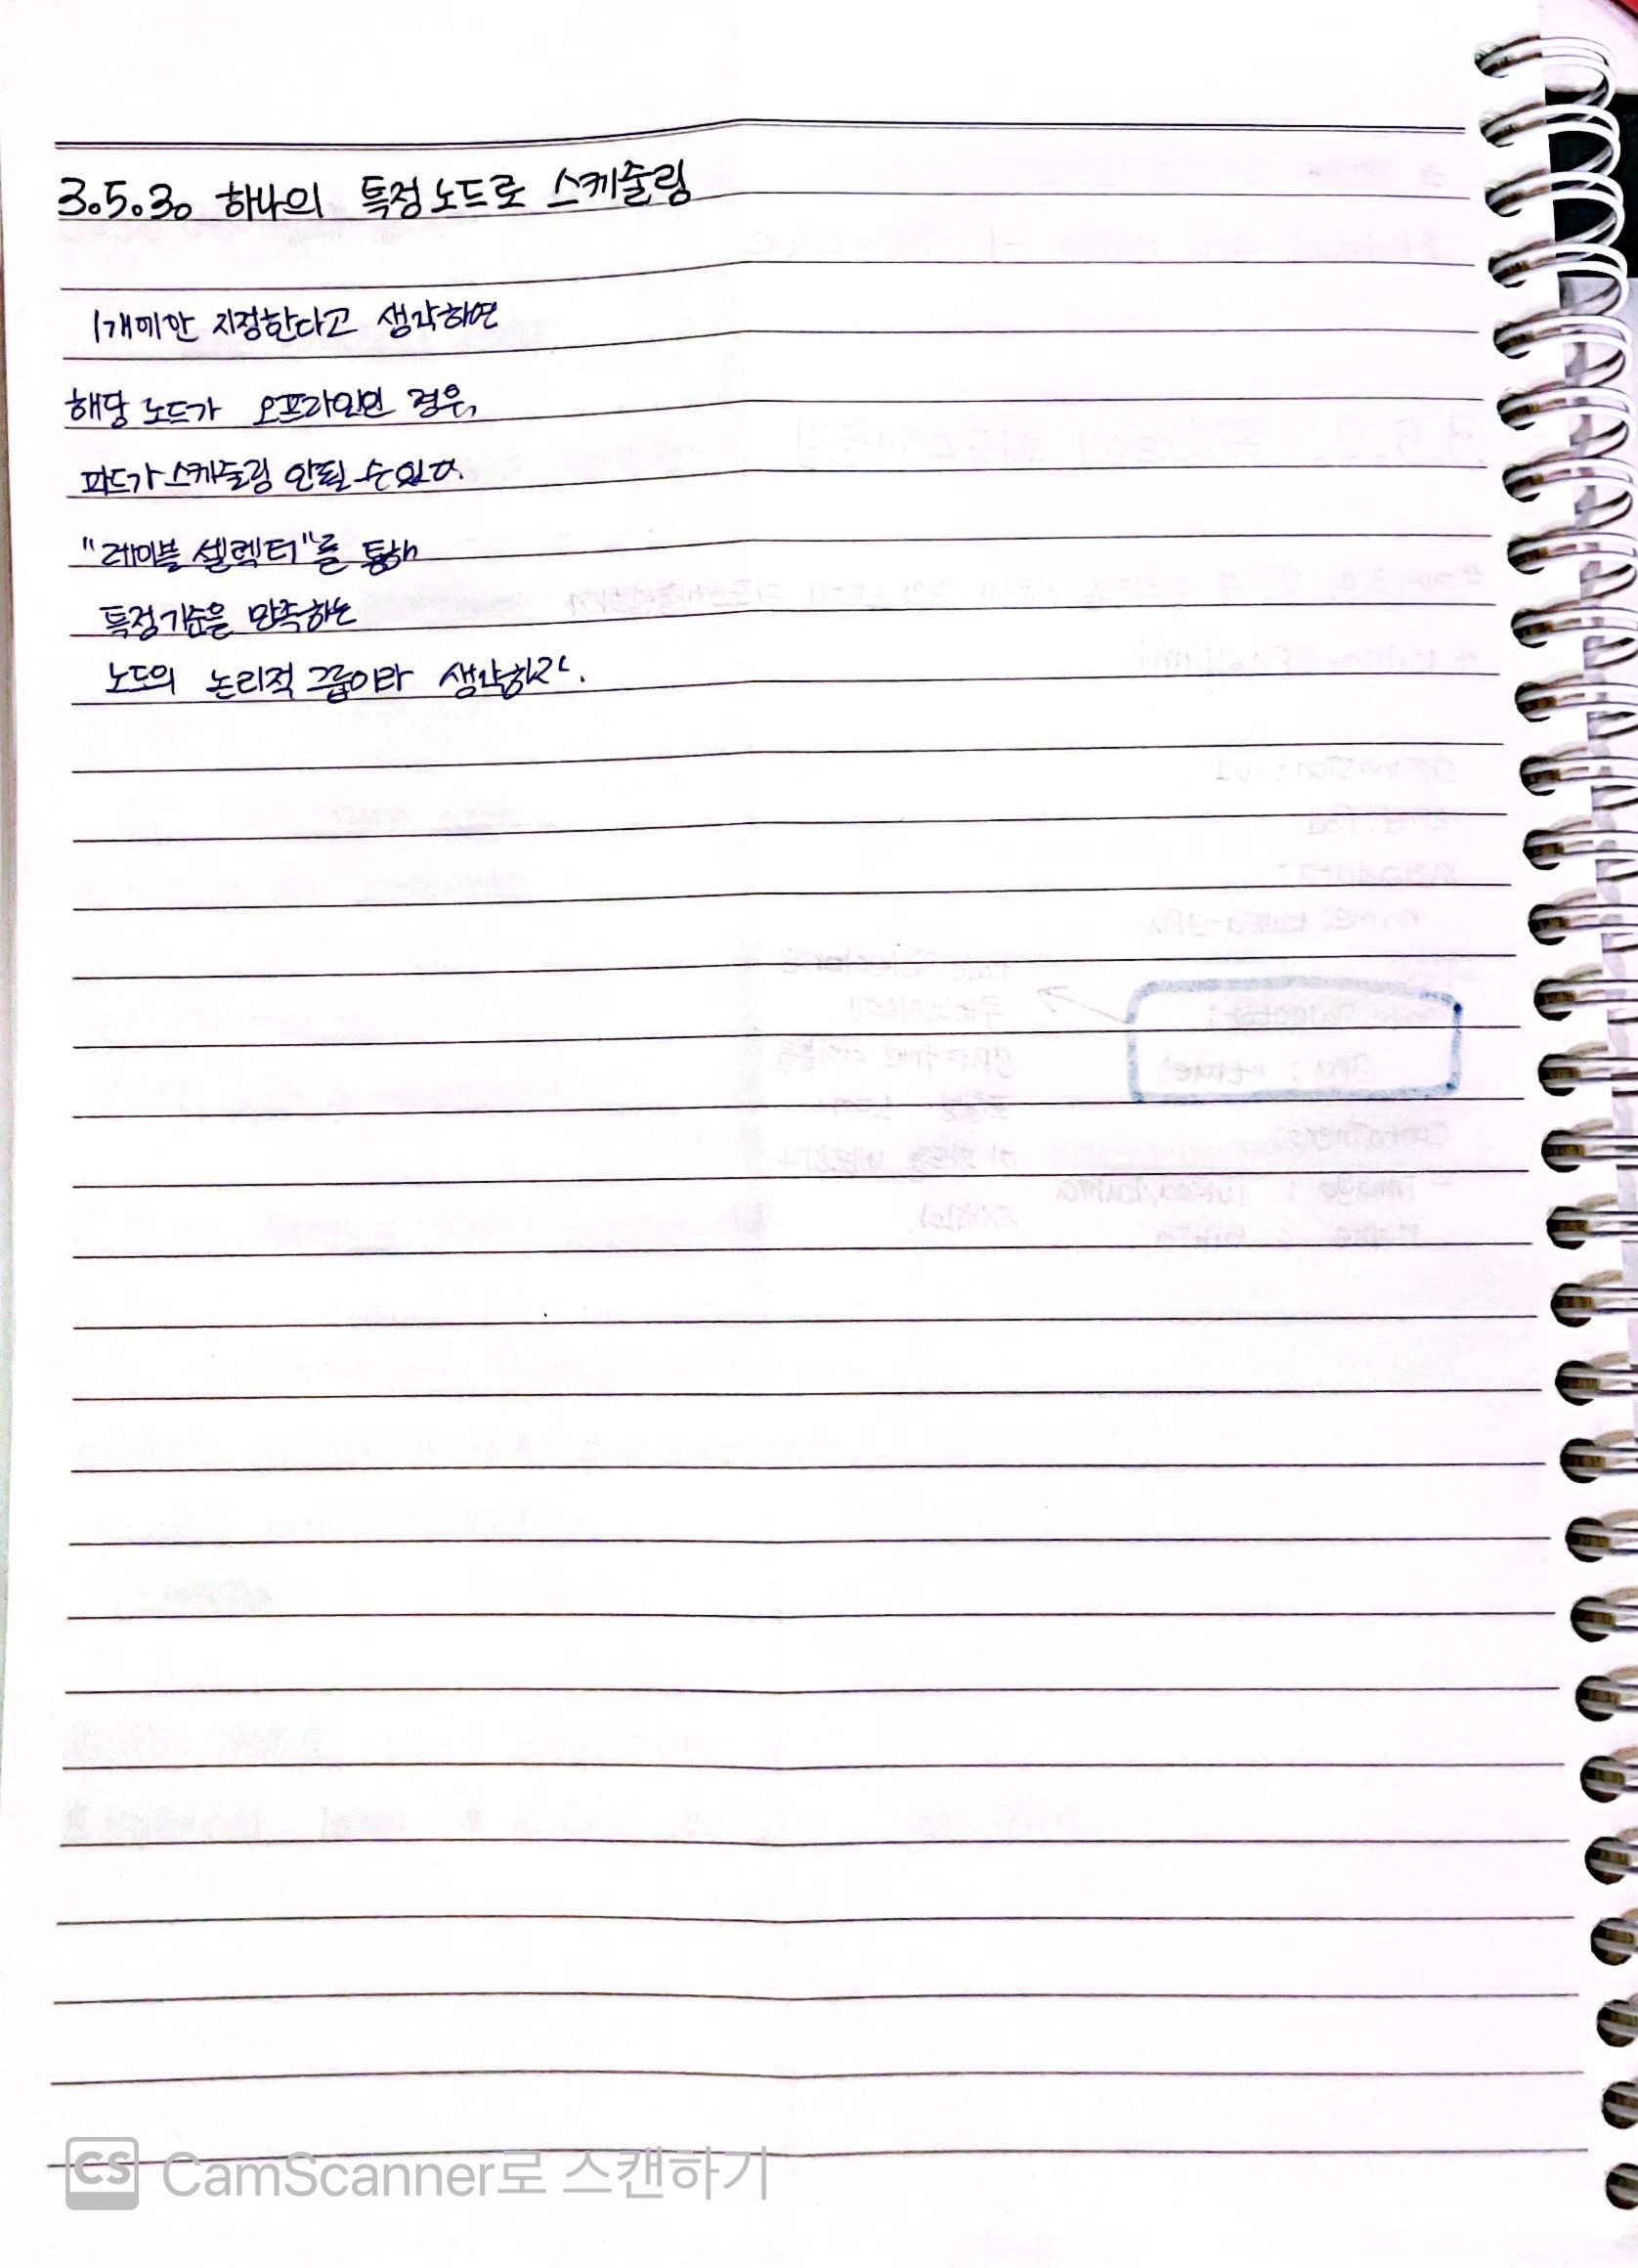 3.5.3. 하나의 특정노드로 스케줄링
1개에만 지정한다고 생각하면
해당 노드가 오프라인인 경우,
파드가 스케줄링 안될 수 있다.
"레이블 셀렉터"를 통해
특정기준을 만족하는
노드의 논리적 그룹이라 생각하자.
CS CamScanner로 스캔하기